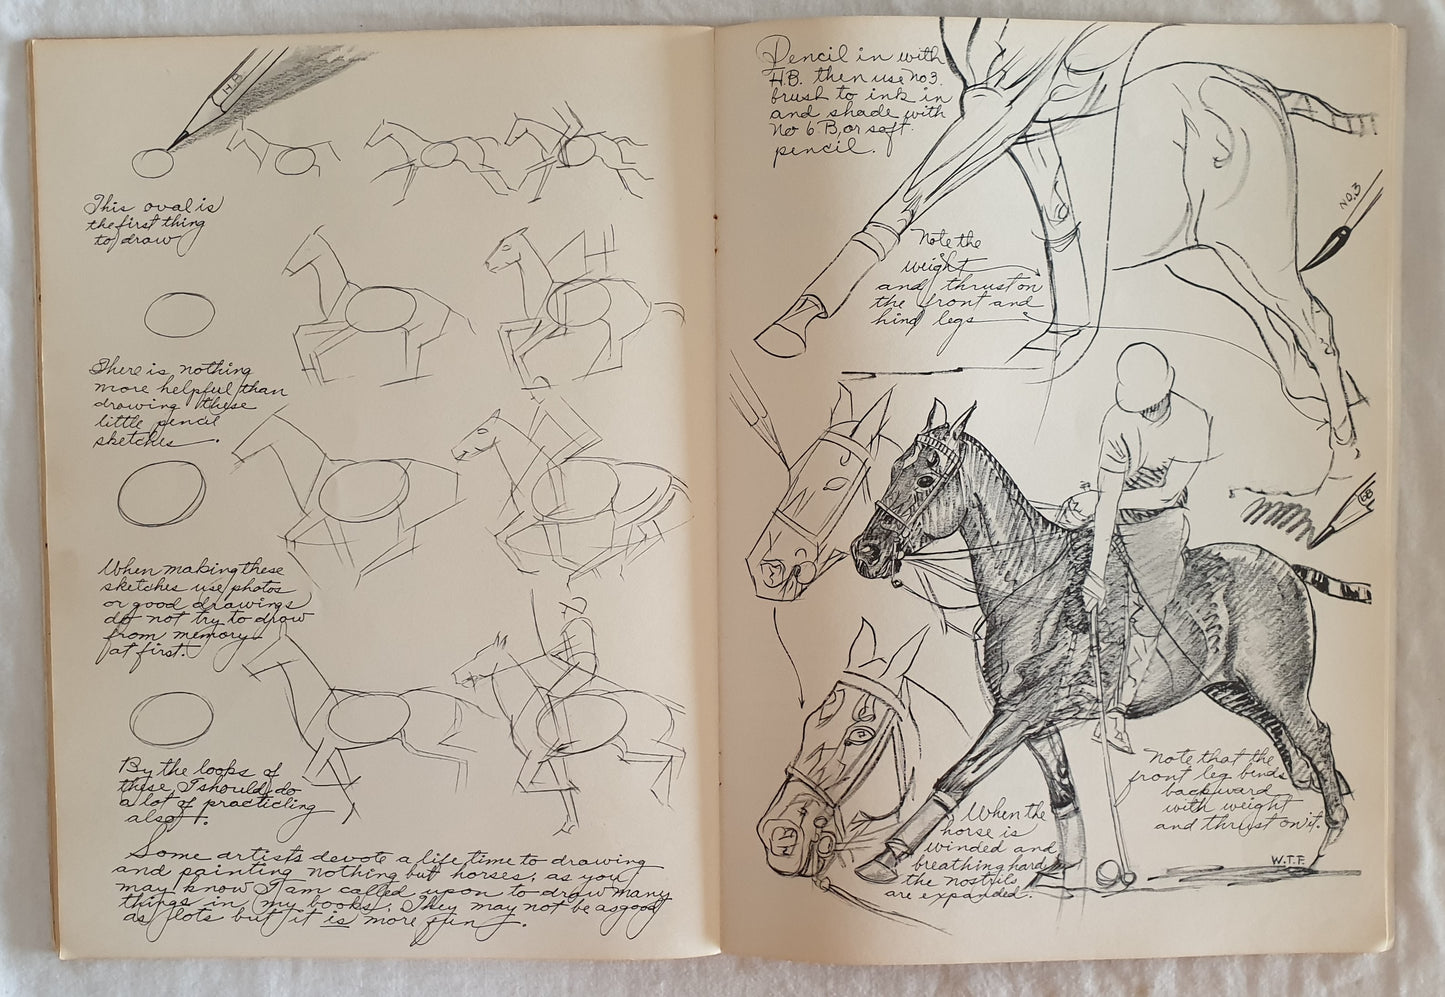 HB
This oval is
the first thing
to draw
There is nothing
more helpful than
drawing these
little pencil
sketches.
When making these
sketches use photos
or good drawings
do not try to draw
from memory
at first.
By the looks of
these I should do
a lot of practicing
also!
Some artists devote a life time to drawing
and painting nothing but horses, as you
may know I am called upon to draw many
things in my books. They may not be as good
as lots but it is more fun.
Pencil in with
H.B. then use No 3.
brush to ink in
and shade with
No 6 B, or soft
pencil.
NO. 3
Note the
weight
and thrust on
the front and
hind legs
6B
Note that the
front leg bends
backward
with weight
and thrust on it.
When the
horse is
winded and
breathing hard
the nostrils
are expanded.
W.T.F.